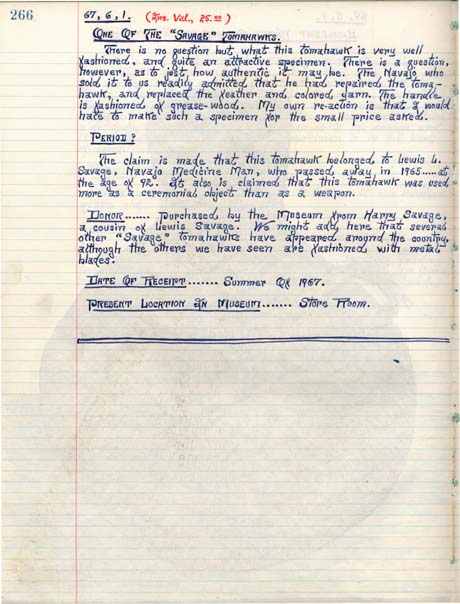 266
67, 6, 1. (Ins. Val., 25.00)
One Of The "Savage" Tomahawks.
There is no question but what this tomahawk is very well
fashioned, and quite an attractive specimen. There is a question,
however, as to just how authentic it may be. The Navajo who
sold it to us readily admitted that he had repaired the toma-
hawk, and replaced the feather and colored yarn. The handle
is fashioned of grease-wood. My own re-action is that I would
hate to make such a specimen for the small price asked.
Period?
The claim is made that this tomahawk belonged to Lewis L.
Savage, Navajo Medicine Man, who passed away in 1965.....at
the age of 92. It also is claimed that this tomahawk was used
more as a ceremonial object than as a weapon.
Donor...... Purchased by the Museum from Harry Savage,
a cousin of Lewis Savage. We might add here that several
other "Savage" Tomahawks have appeared around the country,
although the others we have seen are fashioned with metal
blades.
Date Of Receipt....... Summer Of 1967.
Present Location In Museum....... Store Room.